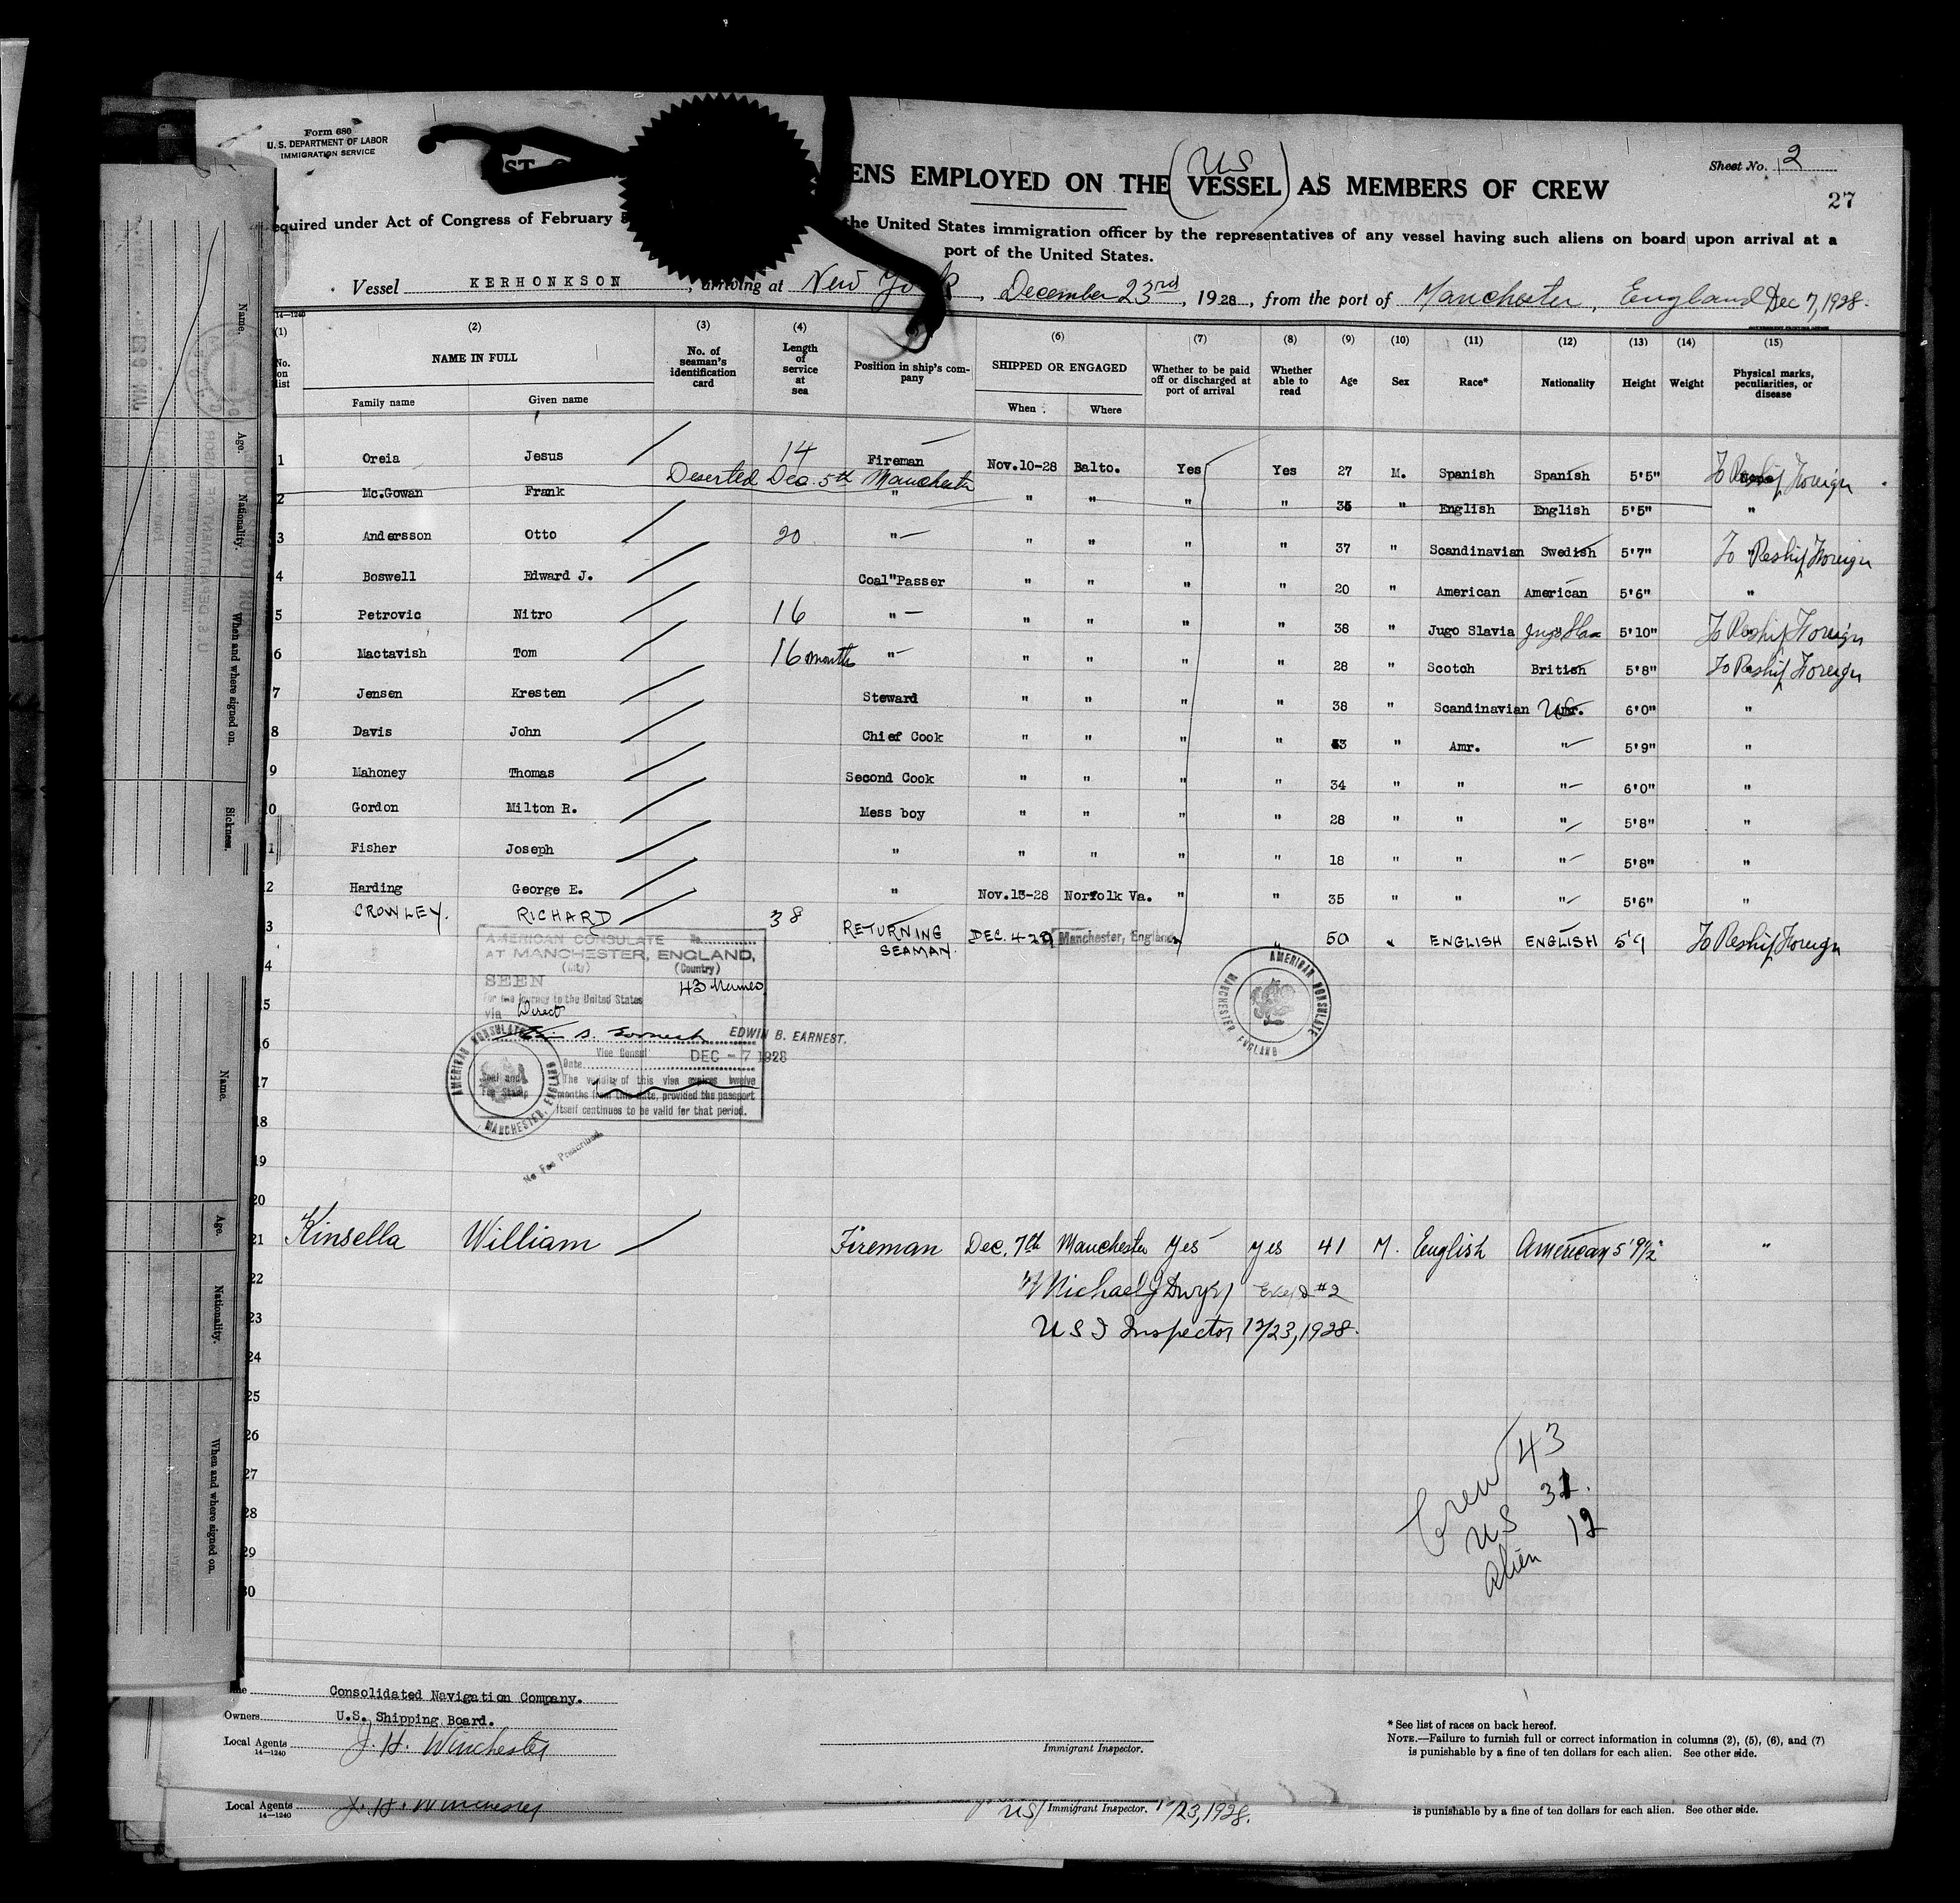 Form 680
U. S. DEPARTMENT OF LABOR
IMMIGRATION SERVICE
Sheet No. 2
27
ENS EMPLOYED ON THE (VESSEL) AS MEMBERS OF CREW
US
equired under Act of Congress of February
the United States immigration officer by the representatives of any vessel having such aliens on board upon arrival at a
port of the United States.
Vessel KERHONKSON, arriving at New York, December 23rd, 1928, from the port of Manchester, England Dec 7, 1928.
14—1240
(1) (2) (3) (4) (6) (7) (8) (9) (10) (11) (12) (13) (14) (15)
No. on list
NAME IN FULL
Family name Given name
No. of seaman's identification card
Length of service at sea
Position in ship's company
SHIPPED OR ENGAGED
When Where
Whether to be paid off or discharged at port of arrival
Whether able to read
Age
Sex
Race*
Nationality
Height
Weight
Physical marks, peculiarities, or disease
1 Oreia Jesus 14 Fireman Nov.10-28 Balto. Yes Yes 27 M. Spanish Spanish 5'5" To Reship Foreign
Deserted Dec. 5th Manchester
2 Mc.Gowan Frank " " " " " 35 " English English 5'5" "
3 Andersson Otto 20 " " " " " 37 " Scandinavian Swedish 5'7" " To Reship Foreign
4 Boswell Edward J. Coal Passer " " " " 20 " American American 5'6" "
5 Petrovic Nitro 16 " " " " " 38 " Jugo Slavia Jugo Slav 5'10" " To Reship Foreign
6 Mactavish Tom 16 months " " " " " 28 " Scotch British 5'8" To Reship Foreign
7 Jensen Kresten Steward " " " " 38 " Scandinavian US 6'0" "
8 Davis John Chief Cook " " " " 53 " Amr. " 5'9" "
9 Mahoney Thomas Second Cook " " " " 34 " " " 6'0" "
0 Gordon Milton R. Mess boy " " " " 28 " " " 5'8" "
1 Fisher Joseph " " " " " 18 " " " 5'8" "
2 Harding George E. " Nov.13-28 Norfolk Va. " " 35 " " " 5'6" "
3 CROWLEY. RICHARD 38 RETURNING SEAMAN. DEC. 4-28 Manchester, England " " 50 " ENGLISH ENGLISH 5'9 To Reship Foreign
4
AMERICAN CONSULATE No.
AT MANCHESTER, ENGLAND,
(City) (Country)
SEEN
43 Names
For the journey to the United States
via Direct
EDWIN B. EARNEST.
Vice Consul
Date DEC - 7 1928
The validity of this visa expires twelve
months from this date, provided the passport
itself continues to be valid for that period.
Seal and
Fee Stamp
AMERICAN CONSULATE
MANCHESTER, ENGLAND
No Fee Prescribed.
AMERICAN CONSULATE
MANCHESTER ENGLAND
15
16
17
18
19
20
21 Kinsella William Fireman Dec. 7th Manchester Yes yes 41 M. English American 5'9½" "
22 Michael J Dwyer #2
23 U S I Inspector 12/23, 1928.
24
25
26
27
28
29
30
Crew 43
US 31.
Alien 12
Consolidated Navigation Company.
Owners U.S. Shipping Board.
Local Agents J. H. Winchester
14—1240
Immigrant Inspector.
* See list of races on back hereof.
NOTE.—Failure to furnish full or correct information in columns (2), (5), (6), and (7)
is punishable by a fine of ten dollars for each alien. See other side.
Local Agents J. H. Winchester
14—1240
US Immigrant Inspector. 12/23, 1928.
is punishable by a fine of ten dollars for each alien. See other side.
Name.
Age.
Nationality.
When and where signed on.
Sickness.
Name.
Age.
Nationality.
When and where signed on.